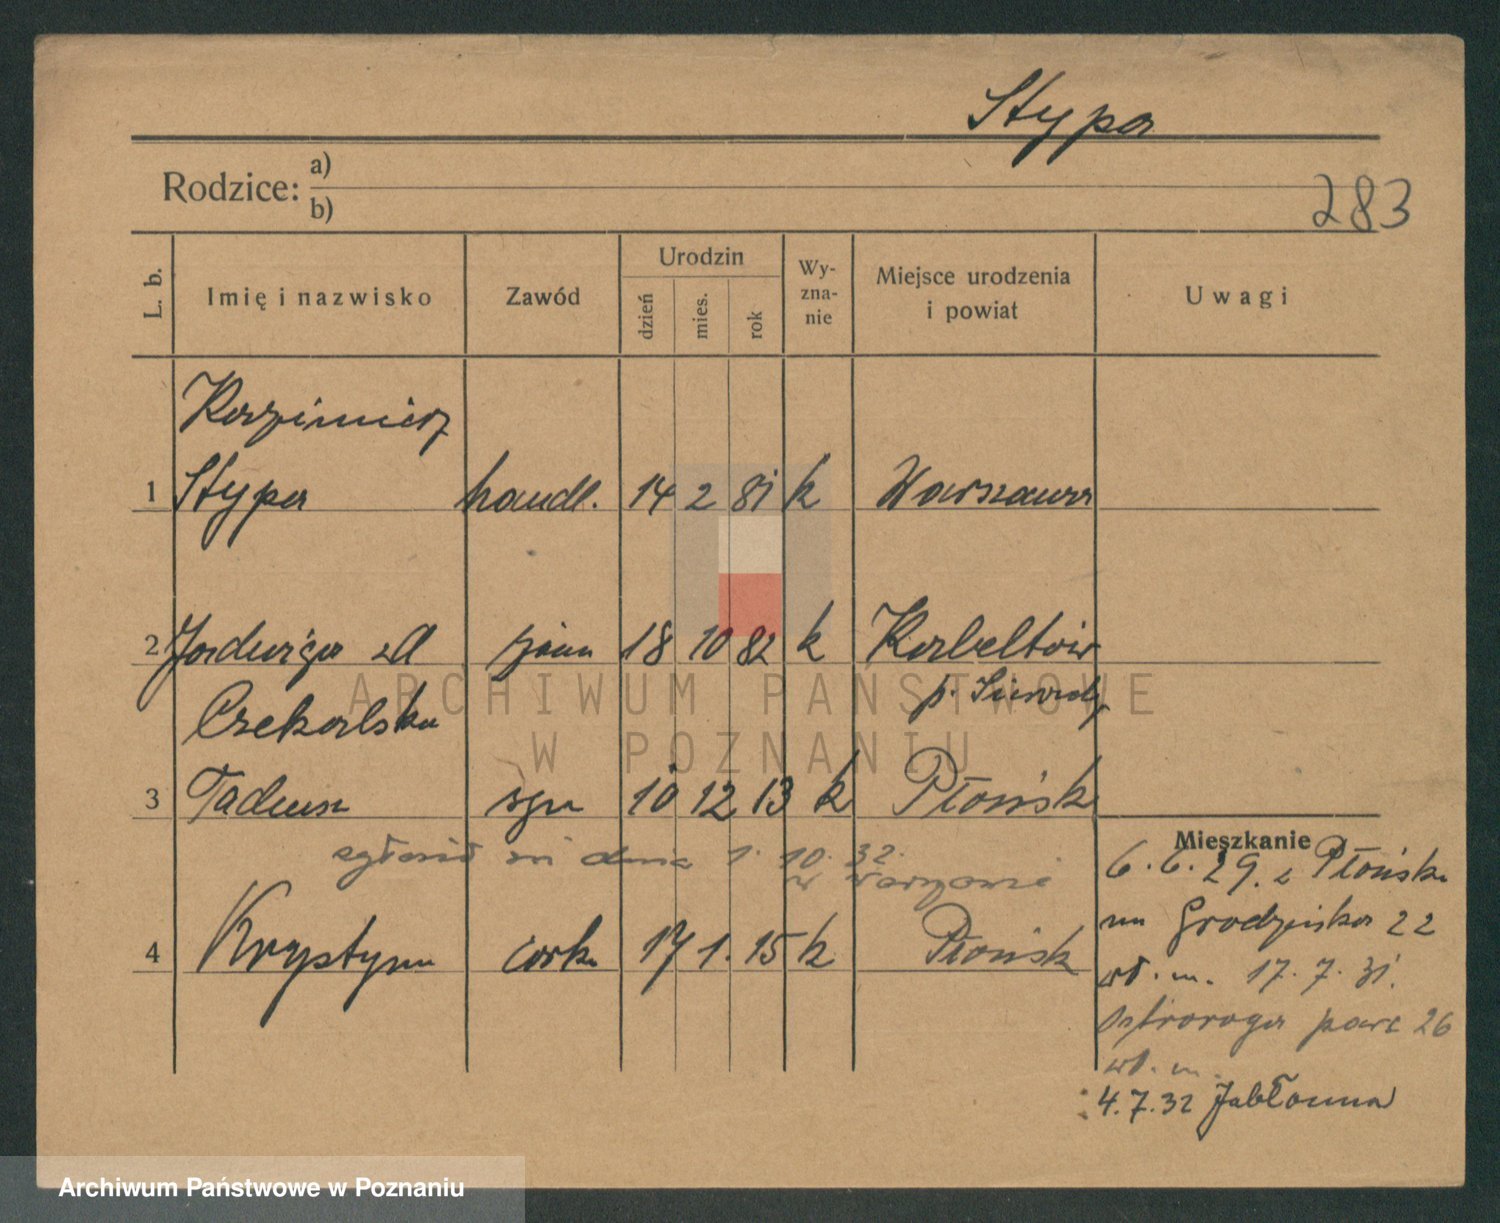 Stypa
Rodzice: a)
b)
283
L. b. Imię i nazwisko Zawód Urodzin dzień mies. rok Wy-zna-nie Miejsce urodzenia i powiat Uwagi
Kazimierz
1 Stypa handl. 14 2 81 k Warszawa
2 Jadwiga zd żona 18 10 82 k
Czekalska
3 Tadeusz syn 10 12 13 k Płońsk
Mieszkanie
zgłosił się dnia 1. 10. 32.
w Warszawie
6. 6. 29. z Płońska
4 Krystyna córka 17 1. 15 k Płońsk
na Grodziska 22
wł. m. 17. 7. 31.
Ostroroga 26
wł. m.
4.7.32 Jabłonna
ARCHIWUM PAŃSTWOWE
W POZNANIU
Archiwum Państwowe w Poznaniu